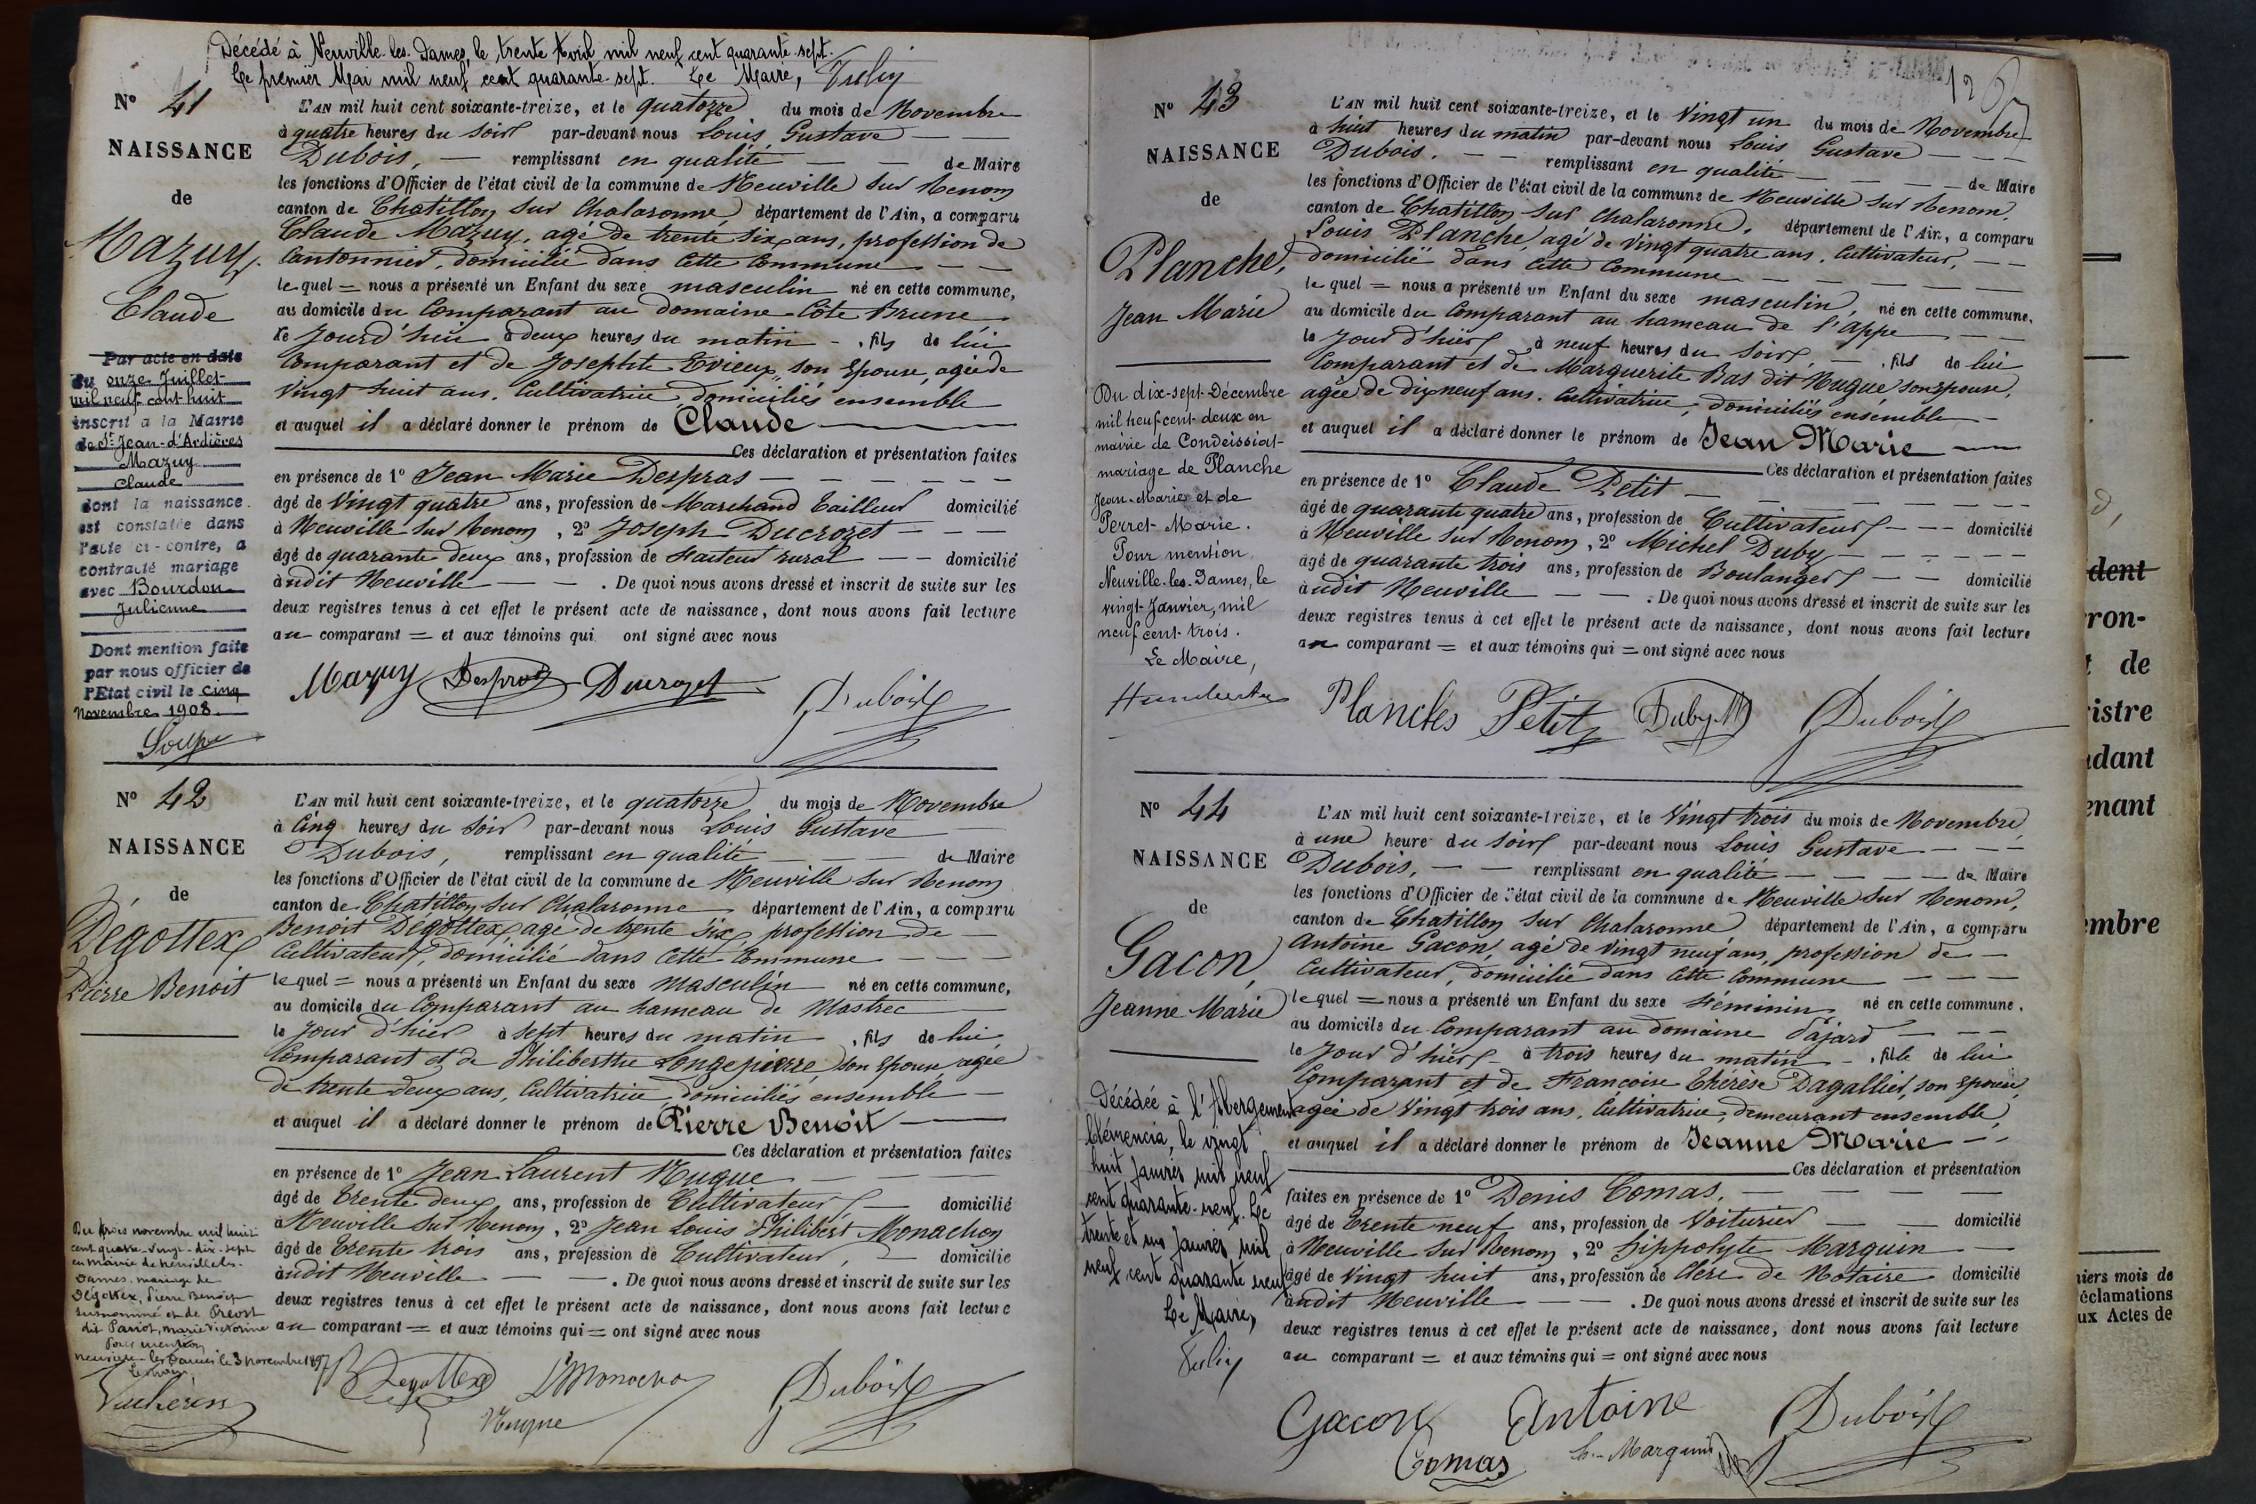 Décédé à Neuville-les-Dames, le trente Avril mil neuf cent quarante-sept.
Le premier Mai mil neuf cent quarante-sept. Le Maire,
N° 41
NAISSANCE
de
Mazuy,
Claude
Par acte en date
du onze Juillet
mil neuf cent huit
inscrit à la Mairie
de St Jean-d'Ardières
Mazuy
Claude
dont la naissance
est constatée dans
l'acte ci-contre, a
contracté mariage
avec Bourdon
Julienne
Dont mention faite
par nous officier de
l'Etat civil le cinq
Novembre 1908.
L'AN mil huit cent soixante-treize, et le quatorze du mois de Novembre
à quatre heures du soir par-devant nous Louis Gustave
Dubois, remplissant en qualité de Maire
les fonctions d'Officier de l'état civil de la commune de Neuville sur Renom
canton de Chatillon sur Chalaronne département de l'Ain, a comparu
Claude Mazuy, agé de trente six ans, profession de
Cantonnier, domicilié dans cette Commune
lequel = nous a présenté un Enfant du sexe masculin né en cette commune,
au domicile du Comparant au domaine Cote Brune
le Jourd'hui à deux heures du matin, fils de lui
Comparant et de Josephte Evieux, son Epouse, agée de
vingt huit ans. Cultivatrice, domiciliés ensemble
et auquel il a déclaré donner le prénom de Claude
Ces déclaration et présentation faites
en présence de 1° Jean Marie Despras
âgé de vingt quatre ans, profession de Marchand Tailleur domicilié
à Neuville sur Renom, 2° Joseph Ducrozet
âgé de quarante deux ans, profession de Facteur rural domicilié
àudit Neuville. De quoi nous avons dressé et inscrit de suite sur les
deux registres tenus à cet effet le présent acte de naissance, dont nous avons fait lecture
au comparant = et aux témoins qui ont signé avec nous
Mazuy Despras Ducrozet Dubois
N° 42
NAISSANCE
de
Dégottex
Pierre Benoit
Du trois novembre mil huit
cent quatre-vingt-dix-sept
en mairie de Neuville les
Dames, mariage de
Dégottex, Pierre Benoit
susnommé et de Prevost
dit Pariot, Marie Victorine
Pour mention
Neuville-les-Dames le 3 novembre 1897
Le Maire,
L'AN mil huit cent soixante-treize, et le quatorze du mois de Novembre
à Cinq heures du Soir par-devant nous Louis Gustave
Dubois, remplissant en qualité de Maire
les fonctions d'Officier de l'état civil de la commune de Neuville sur Renom
canton de Chatillon sur Chalaronne département de l'Ain, a comparu
Benoit Dégottex, agé de trente six, profession de
Cultivateur, domicilié dans cette Commune
lequel = nous a présenté un Enfant du sexe masculin né en cette commune,
au domicile du Comparant au hameau de Mastrec
le jour d'hier à sept heures du matin, fils de lui
Comparant et de Philiberthe Longepierre, son Epouse, agée
de trente deux ans, Cultivatrice, domiciliés ensemble
et auquel il a déclaré donner le prénom de Pierre Benoit
Ces déclaration et présentation faites
en présence de 1° Jean Laurent Nugue
âgé de trente deux ans, profession de Cultivateur domicilié
à Neuville sur Renom, 2° Jean Louis Philibert Monachon
âgé de trente trois ans, profession de Cultivateur, domicilié
àudit Neuville. De quoi nous avons dressé et inscrit de suite sur les
deux registres tenus à cet effet le présent acte de naissance, dont nous avons fait lecture
au comparant = et aux témoins qui = ont signé avec nous
Degottex Monachon Dubois
Nugue
N° 43
NAISSANCE
de
Planche,
Jean Marie
Du dix-sept-Décembre
mil neuf-cent-deux en
mairie de Condeissiat
mariage de Planche
Jean-Marie et de
Perret-Marie.
Pour mention
Neuville-les-Dames, le
vingt-Janvier, mil
neuf cent-trois.
Le Maire,
L'AN mil huit cent soixante-treize, et le Vingt un du mois de Novembre
à huit heures du matin par-devant nous Louis Gustave
Dubois. remplissant en qualité de Maire
les fonctions d'Officier de l'état civil de la commune de Neuville sur Renom.
canton de Chatillon sur Chalaronne. département de l'Ain, a comparu
Louis Planche, agé de Vingt quatre ans. Cultivateur,
domicilié dans cette Commune
lequel = nous a présenté un Enfant du sexe masculin, né en cette commune,
au domicile du Comparant au hameau de l'appe
le jour d'hier à neuf heures du soir, fils de lui
Comparant et de Marguerite Bas dit Nugue son épouse,
agée de dix neuf ans. Cultivatrice, domiciliés ensemble
et auquel il a déclaré donner le prénom de Jean Marie
Ces déclaration et présentation faites
en présence de 1° Claude Petit
âgé de quarante quatre ans, profession de Cultivateur domicilié
à Neuville sur Renom, 2° Michel Duby
âgé de quarante trois ans, profession de Boulanger domicilié
àudit Neuville. De quoi nous avons dressé et inscrit de suite sur les
deux registres tenus à cet effet le présent acte de naissance, dont nous avons fait lecture
au comparant = et aux témoins qui = ont signé avec nous
Planches Petit Duby M Dubois
N° 44
NAISSANCE
de
Gacon,
Jeanne Marie
Décédée à l'Abergement
Clémencia, le vingt
huit Janvier mil neuf
cent quarante-neuf. Le
trente et un Janvier mil
neuf cent quarante neuf
Le Maire,
L'AN mil huit cent soixante-treize, et le Vingt trois du mois de Novembre,
à une heure du soir par-devant nous Louis Gustave
Dubois, remplissant en qualité de Maire
les fonctions d'Officier de l'état civil de la commune de Neuville sur Renom,
canton de Chatillon sur Chalaronne département de l'Ain, a comparu
Antoine Gacon, agé de vingt neuf ans, profession de
Cultivateur, domicilié dans cette Commune
lequel = nous a présenté un Enfant du sexe féminin né en cette commune.
au domicile du Comparant au domaine Pajard
le Jour d'hier à trois heures du matin, fille de lui
Comparant et de Francoise Thérèse Dagallier, son Epouse,
agée de Vingt trois ans, Cultivatrice, demeurant ensemble,
et auquel il a déclaré donner le prénom de Jeanne Marie
Ces déclaration et présentation
faites en présence de 1° Denis Comas,
âgé de trente neuf ans, profession de Voiturier domicilié
à Neuville sur Renom, 2° hippolyte Marguin
âgé de vingt huit ans, profession de Clerc de Notaire domicilié
àudit Neuville. De quoi nous avons dressé et inscrit de suite sur les
deux registres tenus à cet effet le présent acte de naissance, dont nous avons fait lecture
au comparant = et aux témoins qui = ont signé avec nous
Gacon Antoine Dubois
Comas h. Marguin
dent
ron-
de
istre
dant
enant
embre
iers mois de
éclamations
ux Actes de